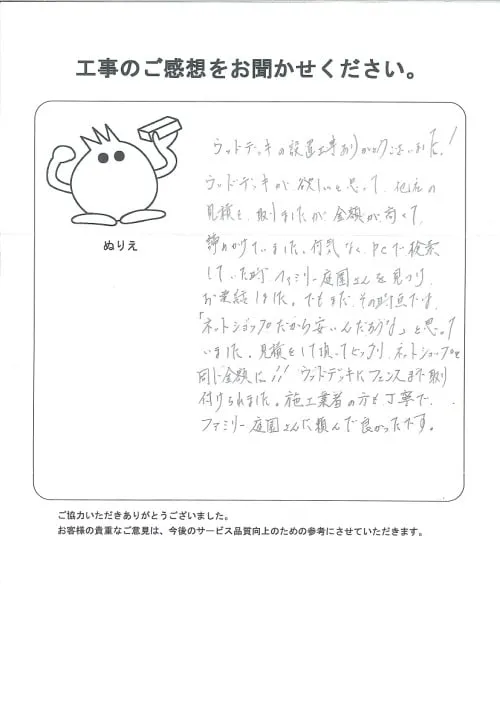 工事のご感想をお聞かせください。
ぬりえ
ウッドデッキの設置工事ありがとうございました!
ウッドデッキが欲しいと思って、他店の
見積を取りましたが金額が高くて
諦めかけていました。何気なくPCで検索
していた時ファミリー庭園さんを見つけ
お電話しました。でもまだその時点では
「ネットショップだから安いんだろうな」と思って
いました。見積をして頂いてビックリ ネットショップと
同じ金額に!! ウッドデッキにフェンスまで取り
付けられました。施工業者の方も丁寧で、
ファミリー庭園さんに頼んで良かったです。
ご協力いただきありがとうございました。
お客様の貴重なご意見は、今後のサービス品質向上のための参考にさせていただきます。